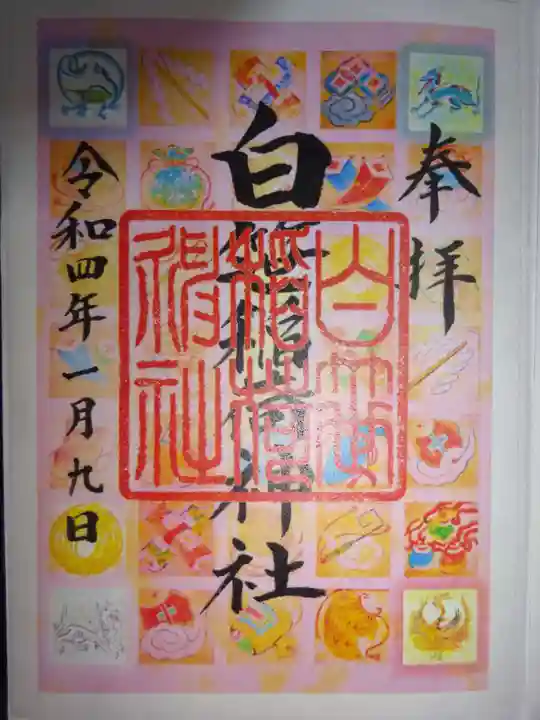 奉拝
白笹稲荷神社
令和四年一月九日
白笹稲荷神社